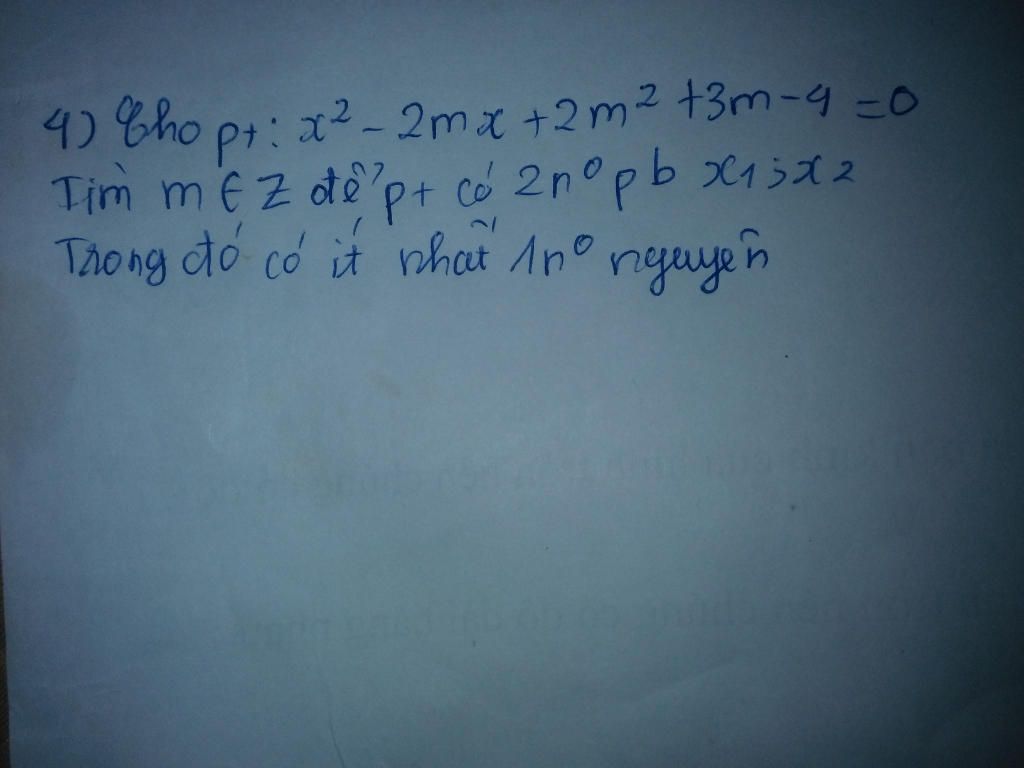 4) Cho pt: x² - 2mx + 2m² + 3m - 4 = 0
Tìm m ∈ Z để pt có 2n⁰ pb x1; x2
Trong đó có ít nhất 1n⁰ nguyên